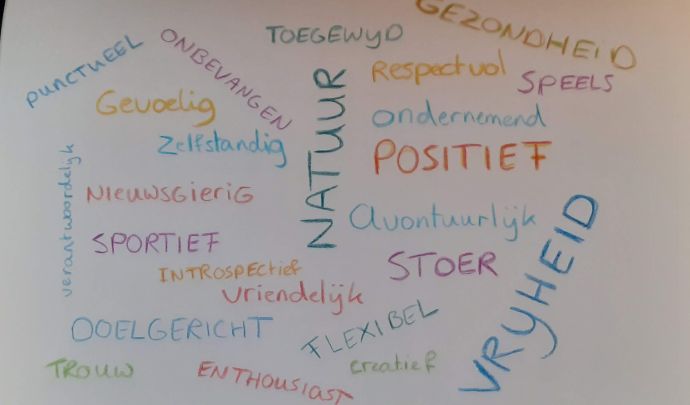 GEZONDHEID
TOEGEWyD
ONBEVANGEN
PUNCTUEEL
Respectvol
SPEELS
Gevoelig
NATUUR
ondernemend
Zelfstandig
POSITIEF
verantwoordelyk
NIEUWSGIERIG
avontuurlyk
VRyHEID
SPORTIEF
STOER
INTROSPECTief
vriendelyk
DOELGERICHT
FLEXIBEL
TROUW
ENTHOUSIAST
creatief